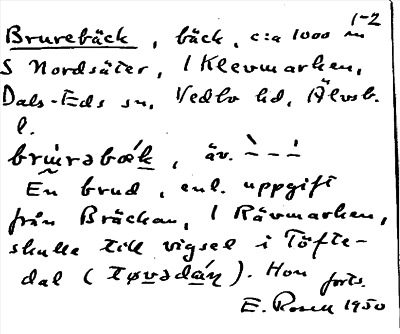 1-2
Brurebäck, bäck, c:a 1000 m
S Nordsäter, 1 Klevmarken,
Dals-Eds sn, Vedbo hd, Älvsb.
l.
brɯ́rəbæ̀k, äv. `– – ´
En brud, enl. uppgift
från Bräckan, 1 Rävmarken,
skulle till vigsel i Töfte-
dal (tøvədáɳ). Hon
forts.
E. Rosell 1950